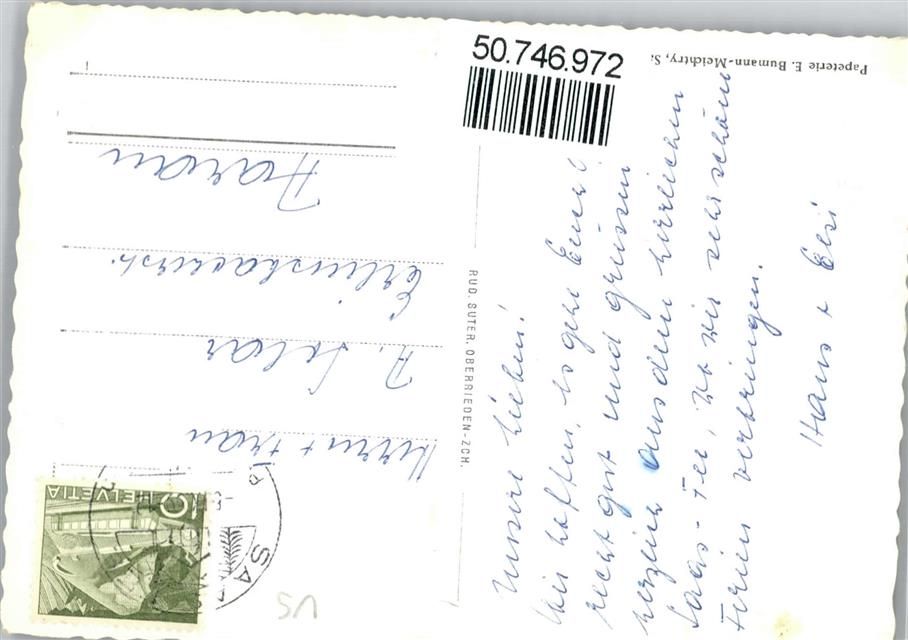 50.746.972
Papeterie E. Bumann-Meichtry, S.
RUD. SUTER, OBERRIEDEN-ZCH.
Unsere Lieben!
Wir hoffen, es gehe Euch
recht gut und grüssen
herzlich aus dem herrlichen
Saas-Fee, wo wir sehr schöne
Ferien verbringen.
Hans + Elsi
Herrn + Frau
A.
Erlinsbacherstr.
Aarau
HELVETIA
10
SA
VS